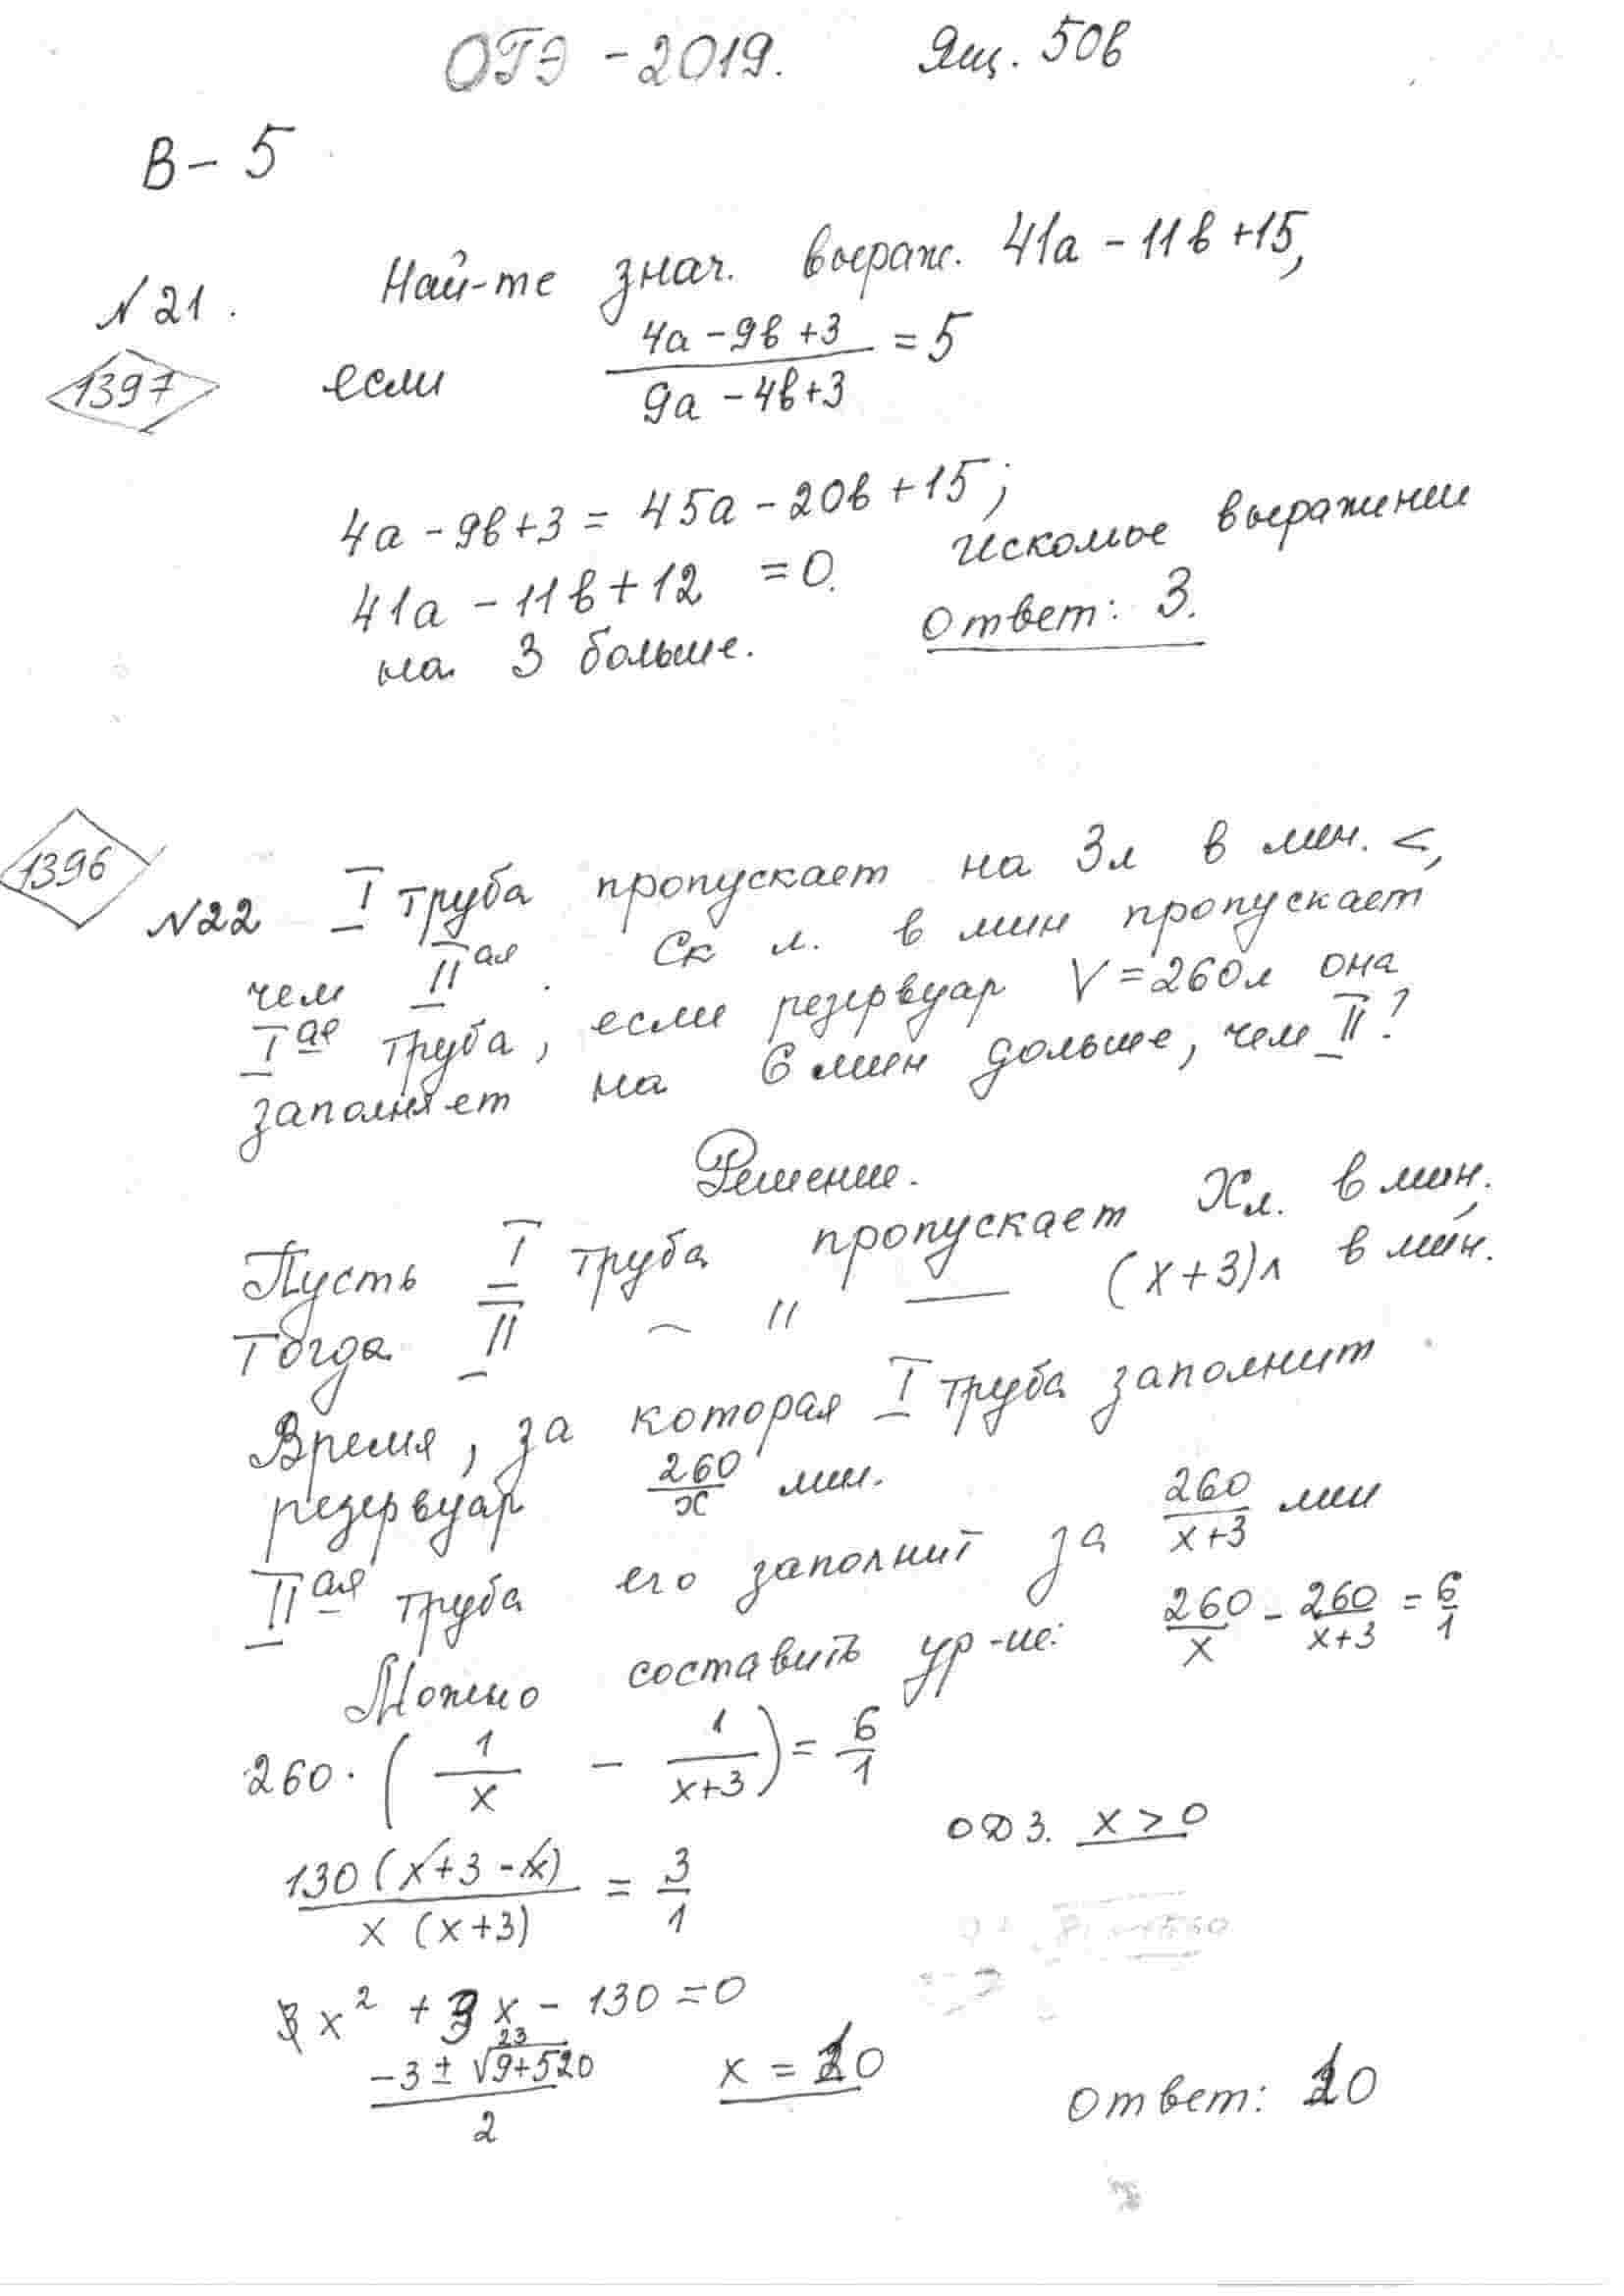 ОГЭ - 2019. Ящ. 50в
В - 5
N 21. Най-те знач. выраж. 41a - 11в + 15,
1397 если (4a - 9в + 3)/(9a - 4в + 3) = 5
4a - 9в + 3 = 45a - 20в + 15;
41a - 11в + 12 = 0. Искомое выражении
на 3 больше. Ответ: 3.
1396
N22 I труба пропускает на 3л в мин. <,
чем II ая. Ск л. в мин пропускает
I ая труба, если резервуар V = 260л она
заполняет на 6 мин дольше, чем II?
Решение.
Пусть I труба пропускает Xл. в мин.,
Тогда II ~ " — (x+3)л в мин.
Время, за которая I труба заполнит
резервуар 260/x мин.
II ая труба его заполнит за 260/(x+3) мин
Можно составить ур-ие: 260/x - 260/(x+3) = 6/1
260 · (1/x - 1/(x+3)) = 6/1
ОДЗ. x > 0
130(x+3-x)/(x(x+3)) = 3/1
x² + 3x - 130 = 0
(-3 ± √(9+520))/2 23 x = 10
Ответ: 10